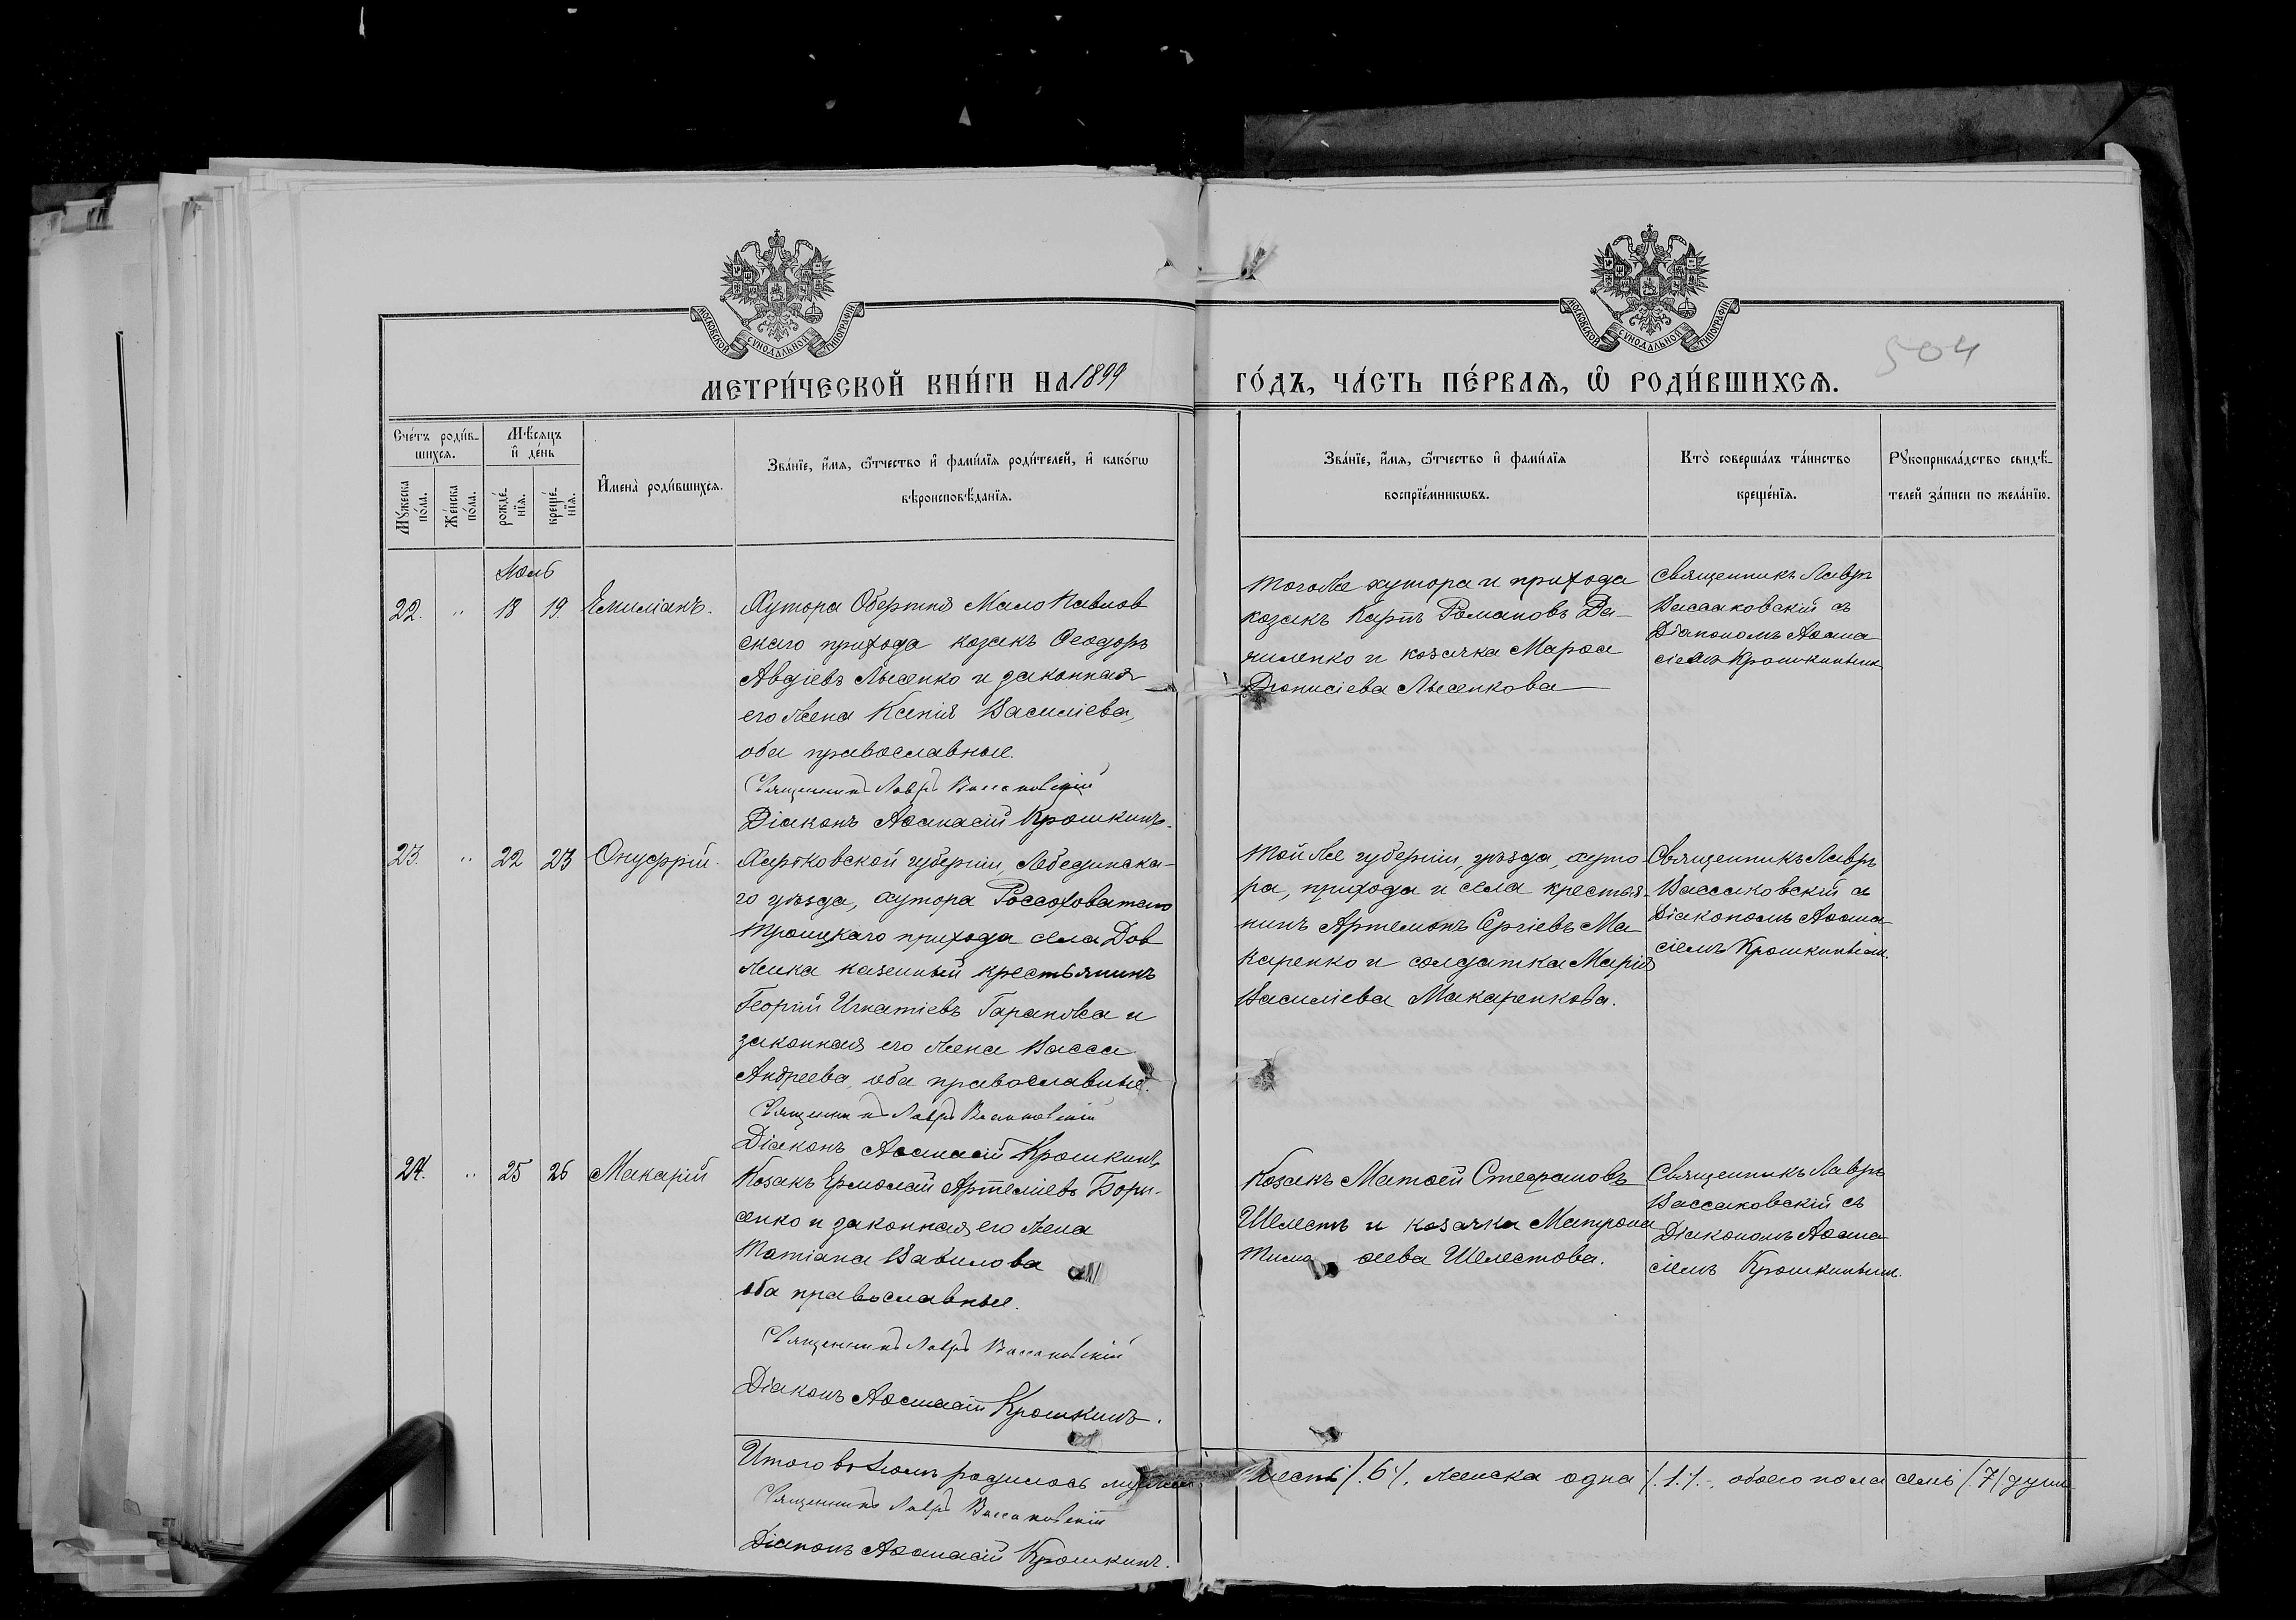 МОСКОВСКОЙ СУНОДАЛЬНОЙ ТИПОГРАФІИ
МОСКОВСКОЙ СУНОДАЛЬНОЙ ТИПОГРАФІИ
504
МЕТРИ́ЧЕСКОЙ КНИ́ГИ НА 1899
ГО́ДЪ, ЧА́СТЬ ПЕ́РВАѦ, Ѡ РОДИ́ВШИХСѦ.
Сче́тъ роди́в-
шихсѧ.
Мꙋ́жеска по́ла.
Же́нска по́ла.
Мѣ́сѧцъ
и҆ де́нь
рожде́-нїѧ.
креще́-нїѧ.
И҆мена̀ роди́вшихсѧ.
Зва́нїе, и҆́мѧ, ѻ҆́тчество и҆ фами́лїѧ роди́телей, и҆ како́гѡ
вѣроисповѣ́данїѧ.
Зва́нїе, и҆́мѧ, ѻ҆́тчество и҆ фами́лїѧ
воспрїе́мникѡвъ.
Кто̀ соверша́лъ та́инство
креще́нїѧ.
Рꙋкоприкла́дство свидѣ́-
телей за́писи по жела́нїю.
22. " 18 19. Емиліанъ.
Хутора Обертня Мало Павлов
скаго прихода козакъ Ѳеодоръ
Авдіевъ Лысенко и законная
его жена Ксенія Василіева,
оба православные.
Священникъ Лавръ Вассаковскій
Діаконъ Аѳанасій Крошкинъ.
тогоже хутора и прихода
козакъ Карпъ Романовъ Да-
ниленко и козачка Марѳа
Діонисіева Лысенкова
Священникъ Лавръ
Вассаковскій съ
Діакономъ Аѳана
сіемъ Крошкинымъ
23. " 22 23 Онуфрій.
Харьковской губерніи, Лебединска-
го уѣзда, хутора Россоховатаго
Троицкаго прихода села Дов
жика казенный крестьянинъ
Георгій Игнатіевъ Гаранжа и
законная его жена Васса
Андреева, оба православные.
Священникъ Лавръ Вассаковскій
Діаконъ Аѳанасій Крошкинъ.
той же губерніи, уѣзда, хуто-
ра, прихода и села крестья-
нинъ Артемонъ Сергіевъ Ма
каренко и солдатка Марія
Василіева Макаренкова.
Священникъ Лавръ
Вассаковскій съ
Діакономъ Аѳана-
сіемъ Крошкинымъ.
24. " 25 26 Макарій
Козакъ Ермолай Артеміевъ Бори-
сенко и законная его жена
Татіана Вавилова
оба православные.
Священникъ Лавръ Вассаковскій
Діаконъ Аѳанасій Крошкинъ.
Козакъ Матѳей Стефановъ
Шелестъ и козачка Матрона
Тимо ѳеева Шелестова.
Священникъ Лавръ
Вассаковскій съ
Діакономъ Аѳана
сіемъ Крошкинымъ.
Итого въ родилось мужеска шесть /.6./, женска одна /.1./., обоего пола семь /.7/ душъ
Священникъ Лавръ Вассаковскій
Діаконъ Аѳанасій Крошкинъ.